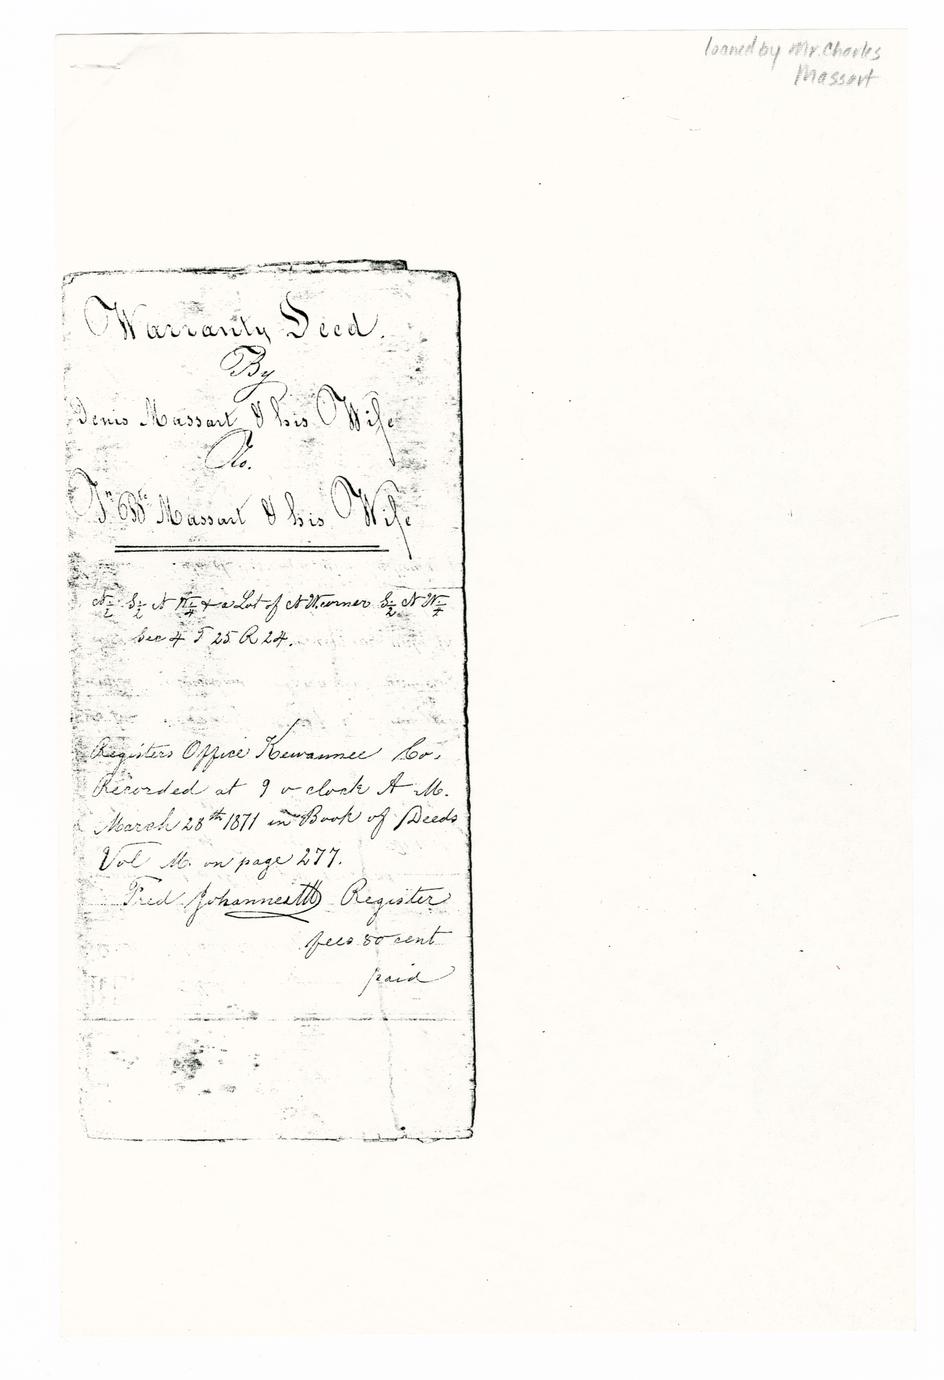 loaned by Mr. Charles
Massart
Warranty Deed.
By
Denis Massart & his Wife
To.
Jn Bte Massart & his Wife
N ½ S ½ N W ¼ & a Lot of N W corner S ½ N W ¼
Sec 4 T 25 R 24.
Registers Office Kewaunee Co.
Recorded at 9 o clock A M.
March 28th 1871 in Book of Deeds
Vol M. on page 277.
Fred Johannes Register
fees 80 cent
paid